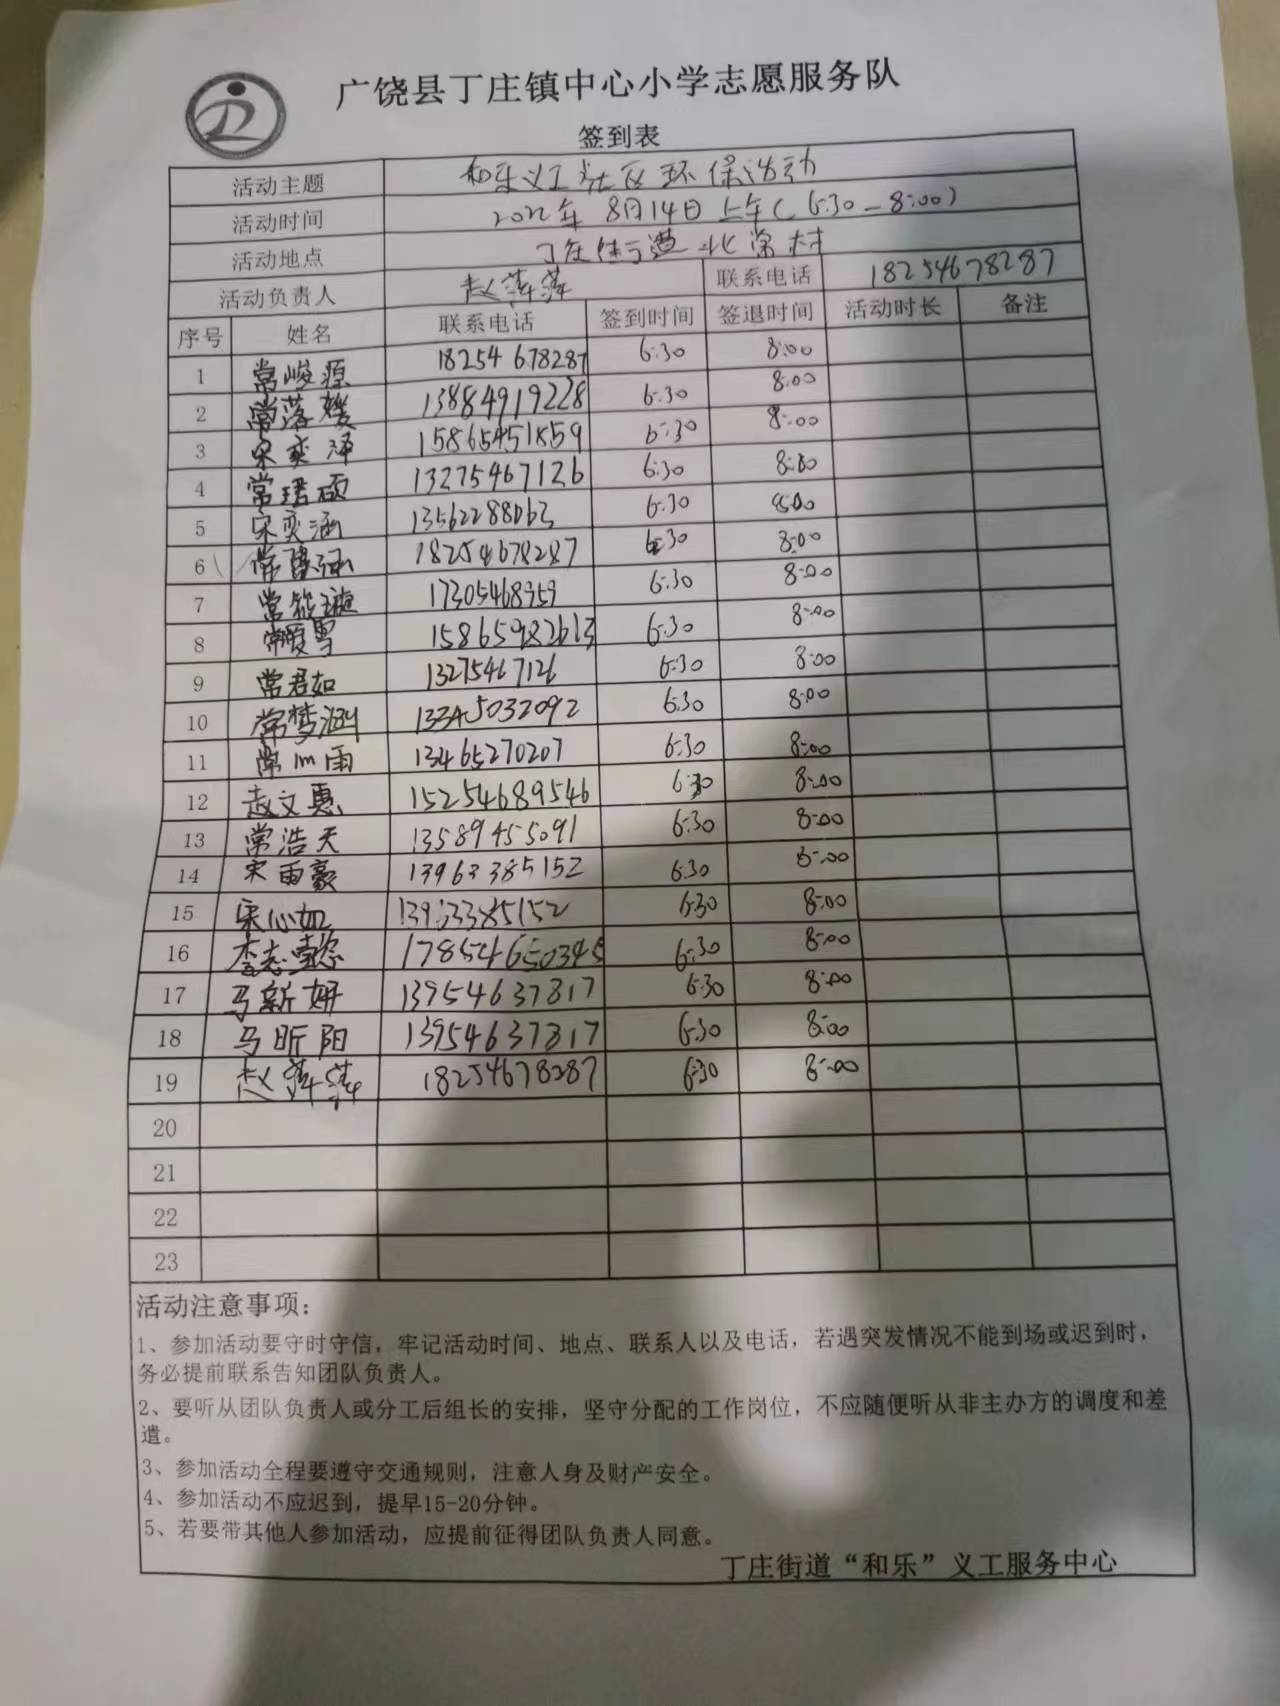 广饶县丁庄镇中心小学志愿服务队
签到表
活动主题 和乐义工社区环保活动
活动时间 2022年 8月14日上午(6:30-8:00)
活动地点 丁庄街道北常村
活动负责人 赵萍萍 联系电话 18254678287
序号 姓名 联系电话 签到时间 签退时间 活动时长 备注
1 常峻源 18254678287 6:30 8:00
2 常落媛 13884919228 6:30 8:00
3 宋奕泽 15865451859 6:30 8:00
4 常珺硕 13275467126 6:30 8:00
5 宋奕涵 13562288063 6:30 8:00
6 常 涵 18254678287 6:30 8:00
7 常筱 17305468959 6:30 8:00
8 常 雪 15865982613 6:30 8:00
9 常君如 13275467126 6:30 8:00
10 常梦涵 13345032092 6:30 8:00
11 常 雨 13465270207 6:30 8:00
12 赵文惠 15254689546 6:30 8:00
13 常浩天 13589455091 6:30 8:00
14 宋雨豪 13963385152 6:30 8:00
15 宋心如 13963385152 6:30 8:00
16 李志 17854650345 6:30 8:00
17 马新妍 13954637817 6:30 8:00
18 马昕阳 13954637817 6:30 8:00
19 赵萍萍 18254678287 6:30 8:00
20
21
22
23
活动注意事项：
1、参加活动要守时守信，牢记活动时间、地点、联系人以及电话，若遇突发情况不能到场或迟到时，
务必提前联系告知团队负责人。
2、要听从团队负责人或分工后组长的安排，坚守分配的工作岗位，不应随便听从非主办方的调度和差
遣。
3、参加活动全程要遵守交通规则，注意人身及财产安全。
4、参加活动不应迟到，提早15-20分钟。
5、若要带其他人参加活动，应提前征得团队负责人同意。
丁庄街道“和乐”义工服务中心